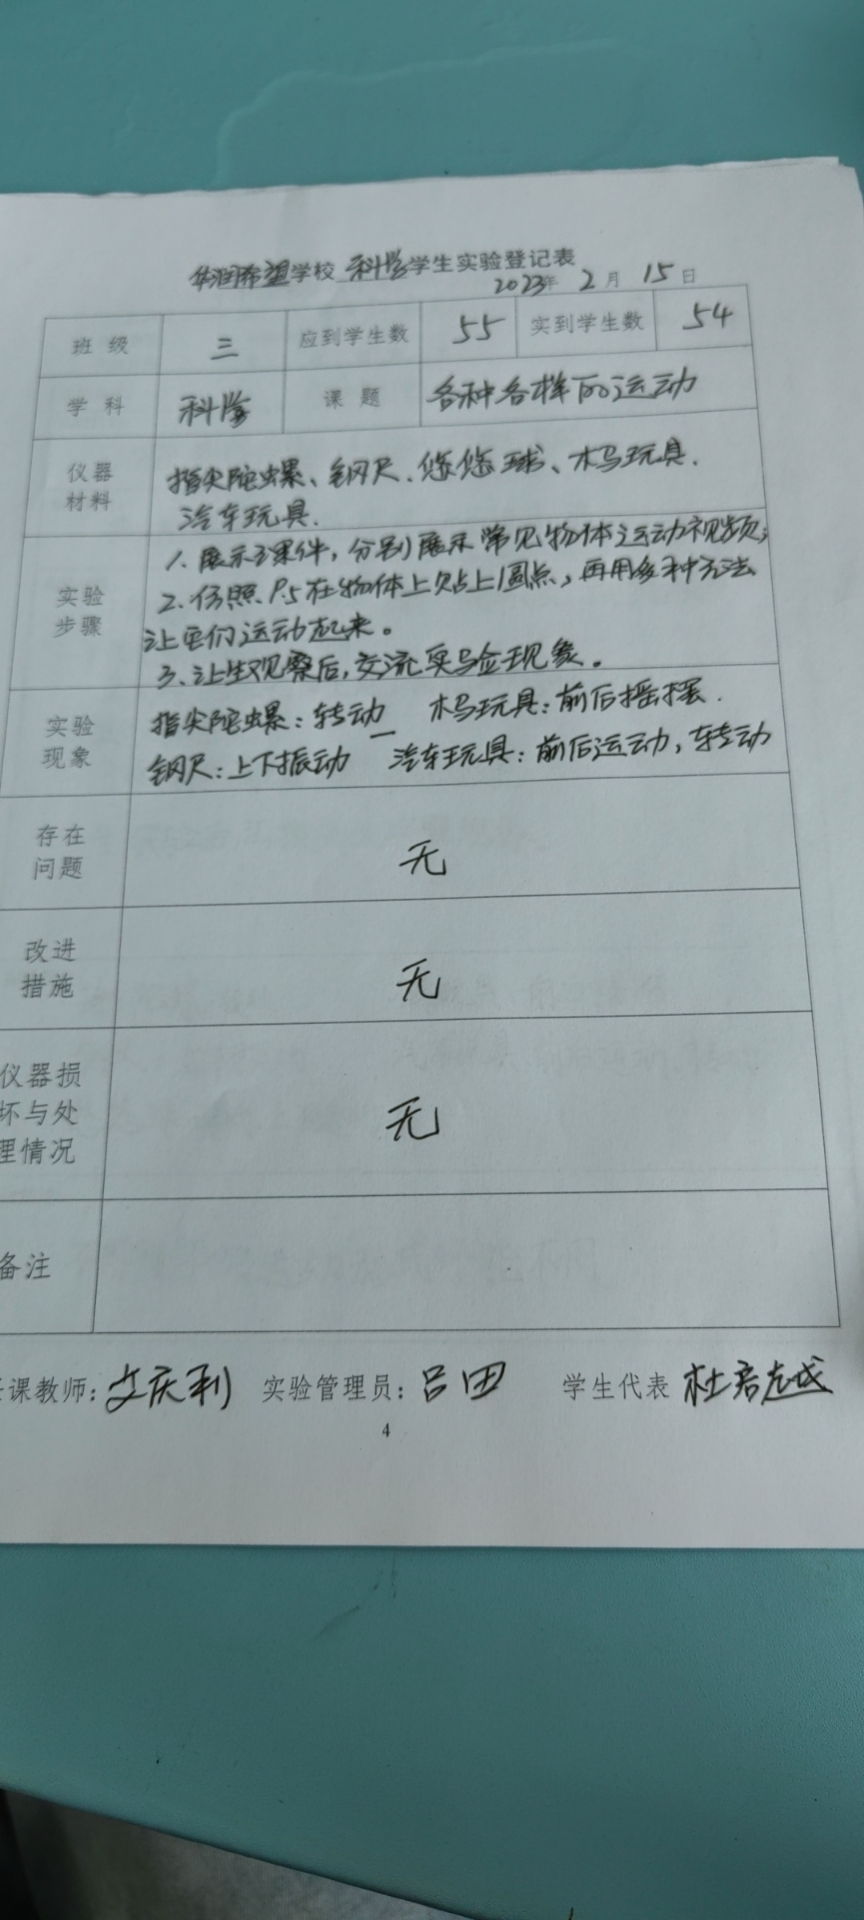 华润希望学校 科学学生实验登记表
2023年 2月 15日
班级 三 应到学生数 55 实到学生数 54
学科 科学 课题 各种各样的运动
仪器材料 指尖陀螺、钢尺、悠悠球、木马玩具.
汽车玩具.
实验步骤 1、展示课件，分别展示常见物体运动视频；
2、仿照P.5在物体上贴上圆点，再用多种方法
让它们运动起来。
3、让生观察后，交流实验现象。
实验现象 指尖陀螺：转动 木马玩具：前后摇摆.
钢尺：上下振动 汽车玩具：前后运动，转动
存在问题 无
改进措施 无
仪器损坏与处理情况 无
备注
课教师：艾庆利 实验管理员：吕田 学生代表
4